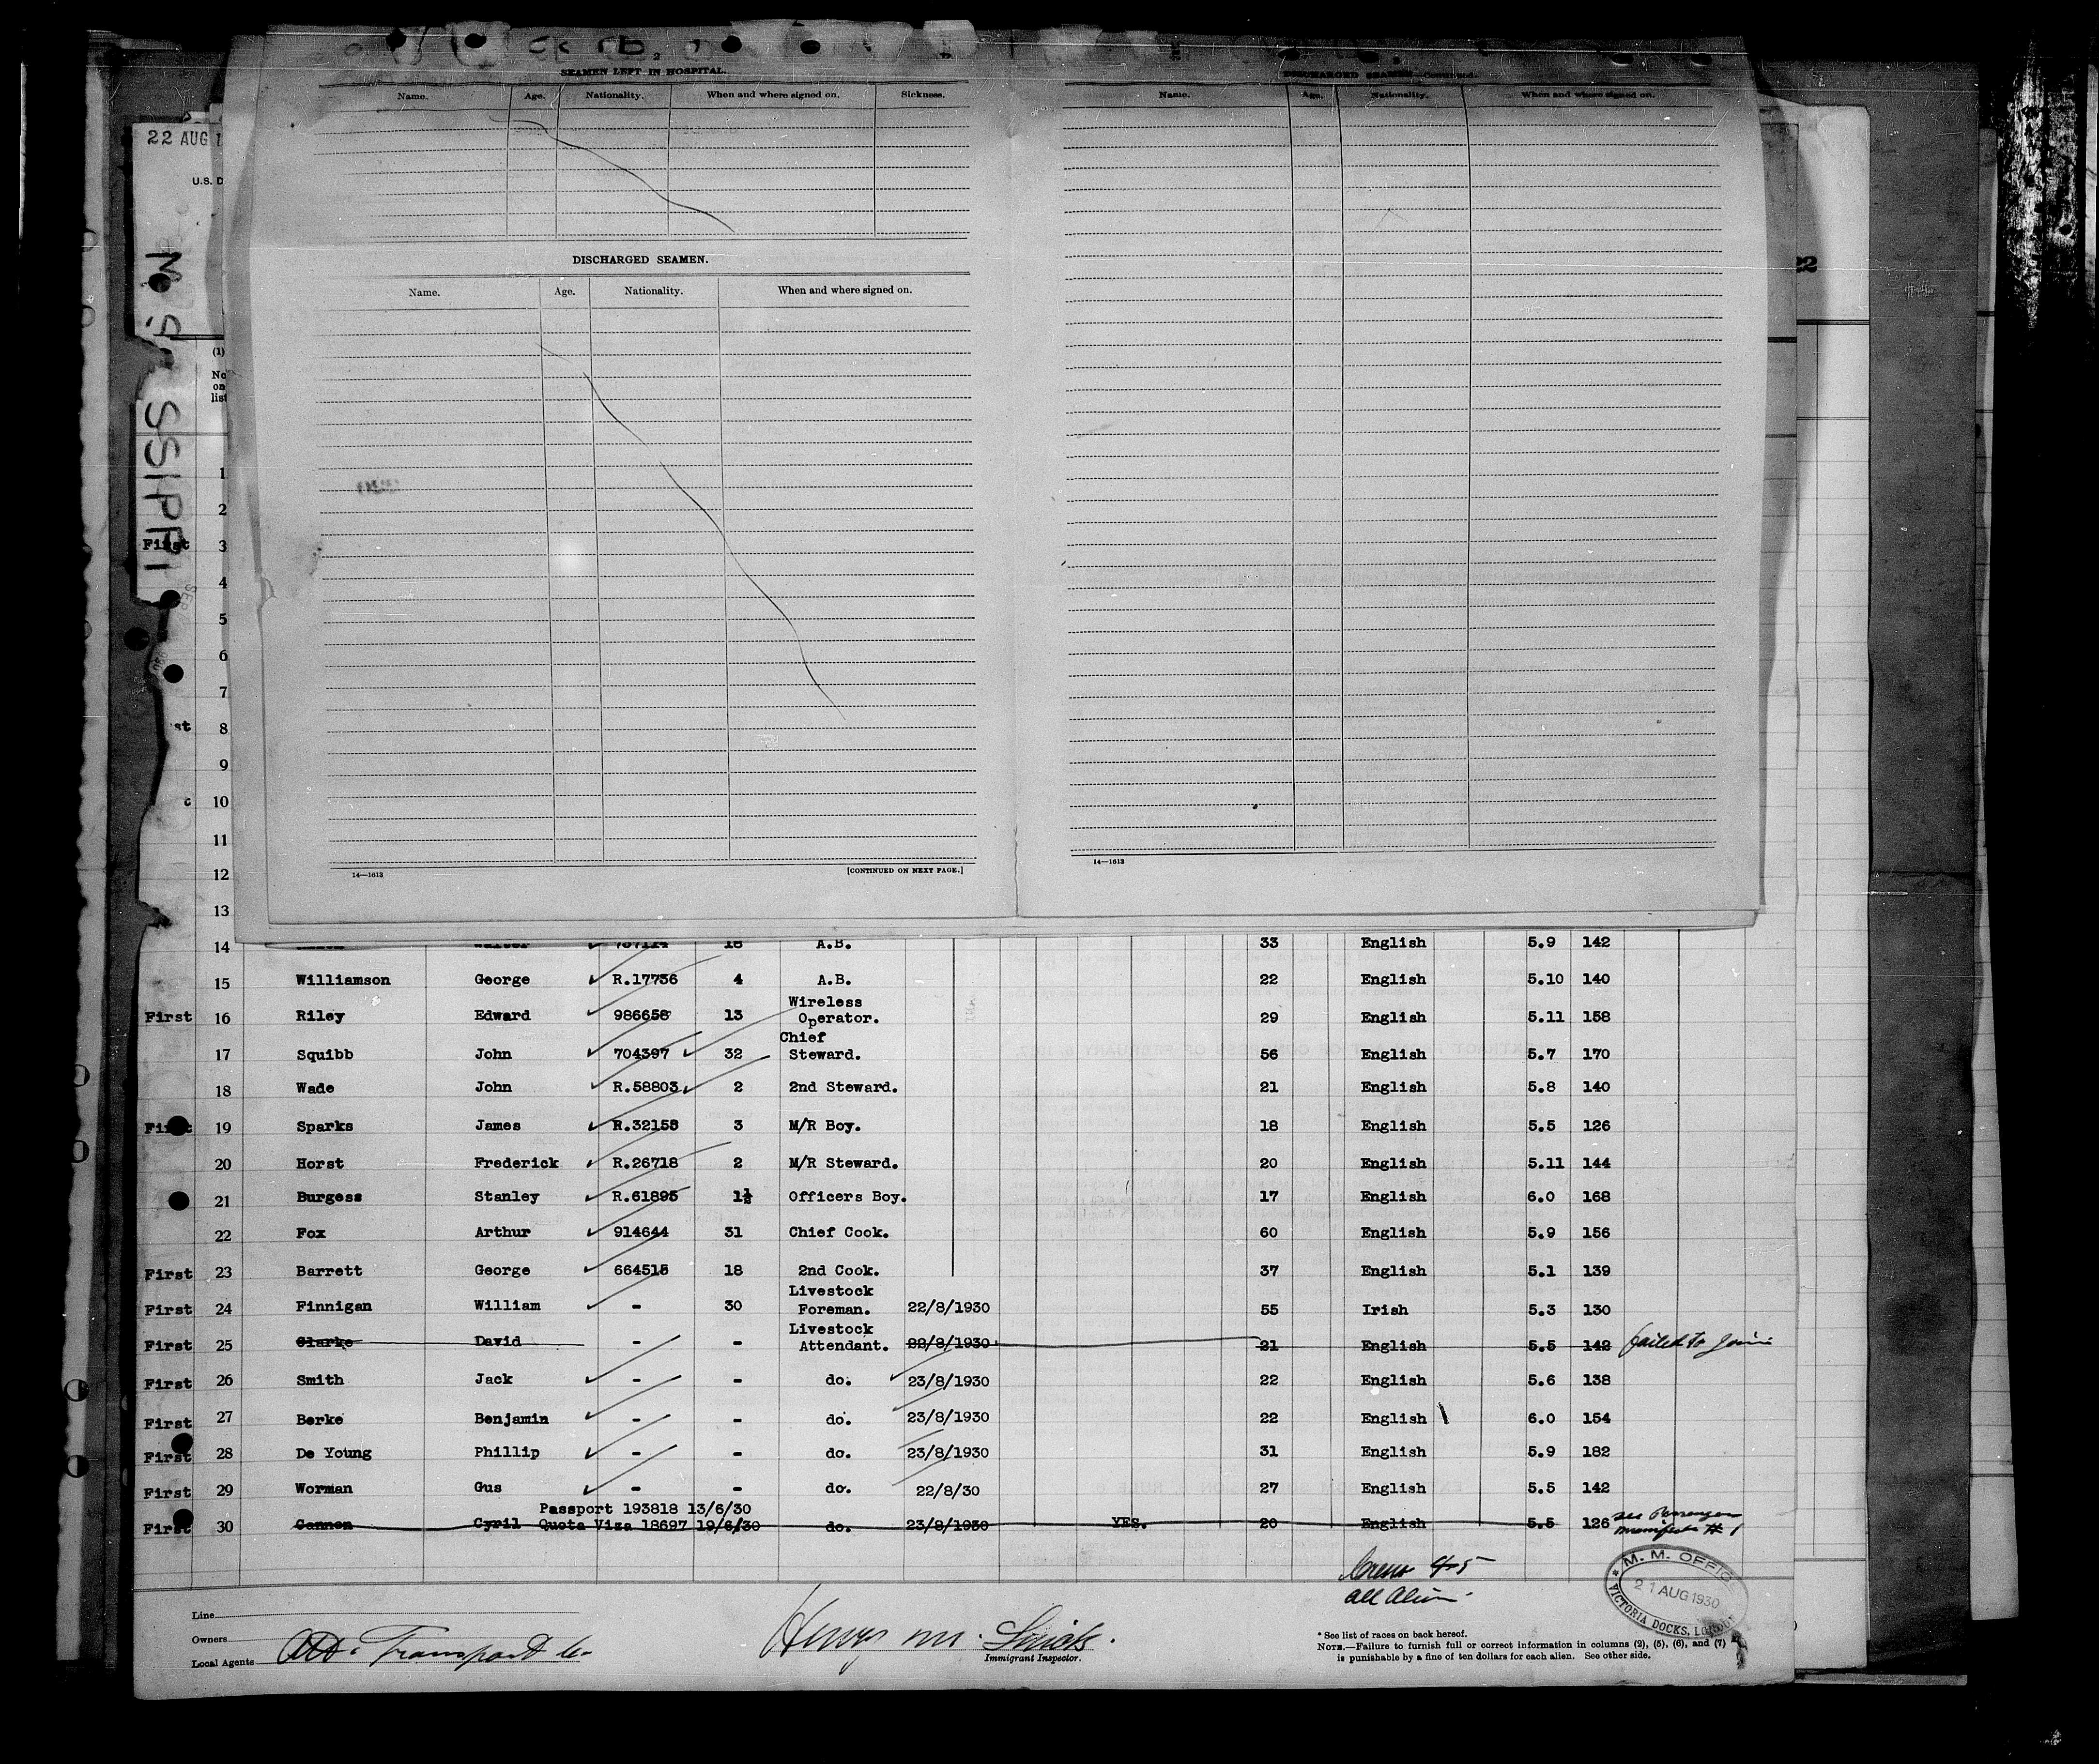 2
SEAMEN LEFT IN HOSPITAL.
Name. Age. Nationality. When and where signed on. Sickness.
DISCHARGED SEAMEN.
Name. Age. Nationality. When and where signed on.
14—1613 [CONTINUED ON NEXT PAGE.]
DISCHARGED SEAMEN—Continued.
Name. Age. Nationality. When and where signed on.
14—1613
22 AUG 1
U.S. D
SSIPPI
22
(1)
No
on
list
1
2
First 3
4
5
6
7
st 8
9
c 10
11
12
13
14 18 A.B. 33 English 5.9 142
15 Williamson George R.17736 4 A.B. 22 English 5.10 140
First 16 Riley Edward 986658 13 Wireless Operator. 29 English 5.11 158
17 Squibb John 704397 32 Chief Steward. 56 English 5.7 170
18 Wade John R.58803 2 2nd Steward. 21 English 5.8 140
First 19 Sparks James R.32158 3 M/R Boy. 18 English 5.5 126
20 Horst Frederick R.26718 2 M/R Steward. 20 English 5.11 144
21 Burgess Stanley R.61895 1½ Officers Boy. 17 English 6.0 168
22 Fox Arthur 914644 31 Chief Cook. 60 English 5.9 156
First 23 Barrett George 664515 18 2nd Cook. 37 English 5.1 139
First 24 Finnigan William - 30 Livestock Foreman. 22/8/1930 55 Irish 5.3 130
First 25 Clarke David - - Livestock Attendant. 22/8/1930 21 English 5.5 142 failed to join
First 26 Smith Jack - - do. 23/8/1930 22 English 5.6 138
First 27 Berke Benjamin - - do. 23/8/1930 22 English 6.0 154
First 28 De Young Phillip - - do. 23/8/1930 31 English 5.9 182
First 29 Worman Gus - - do. 22/8/30 27 English 5.5 142
Passport 193818 13/6/30
First 30 Cannon Cyril Quota Viza 18697 19/6/30 do. 23/8/1930 YES. 20 English 5.5 126 see Passenger
manifest # 1
Crew 45
all Alien
M. M. OFFIC
21 AUG 1930
VICTORIA DOCKS, LONDON
Line
Owners
Local Agents
Transport Co.
Henry M.
Immigrant Inspector.
* See list of races on back hereof.
NOTE.—Failure to furnish full or correct information in columns (2), (5), (6), and (7)
is punishable by a fine of ten dollars for each alien. See other side.